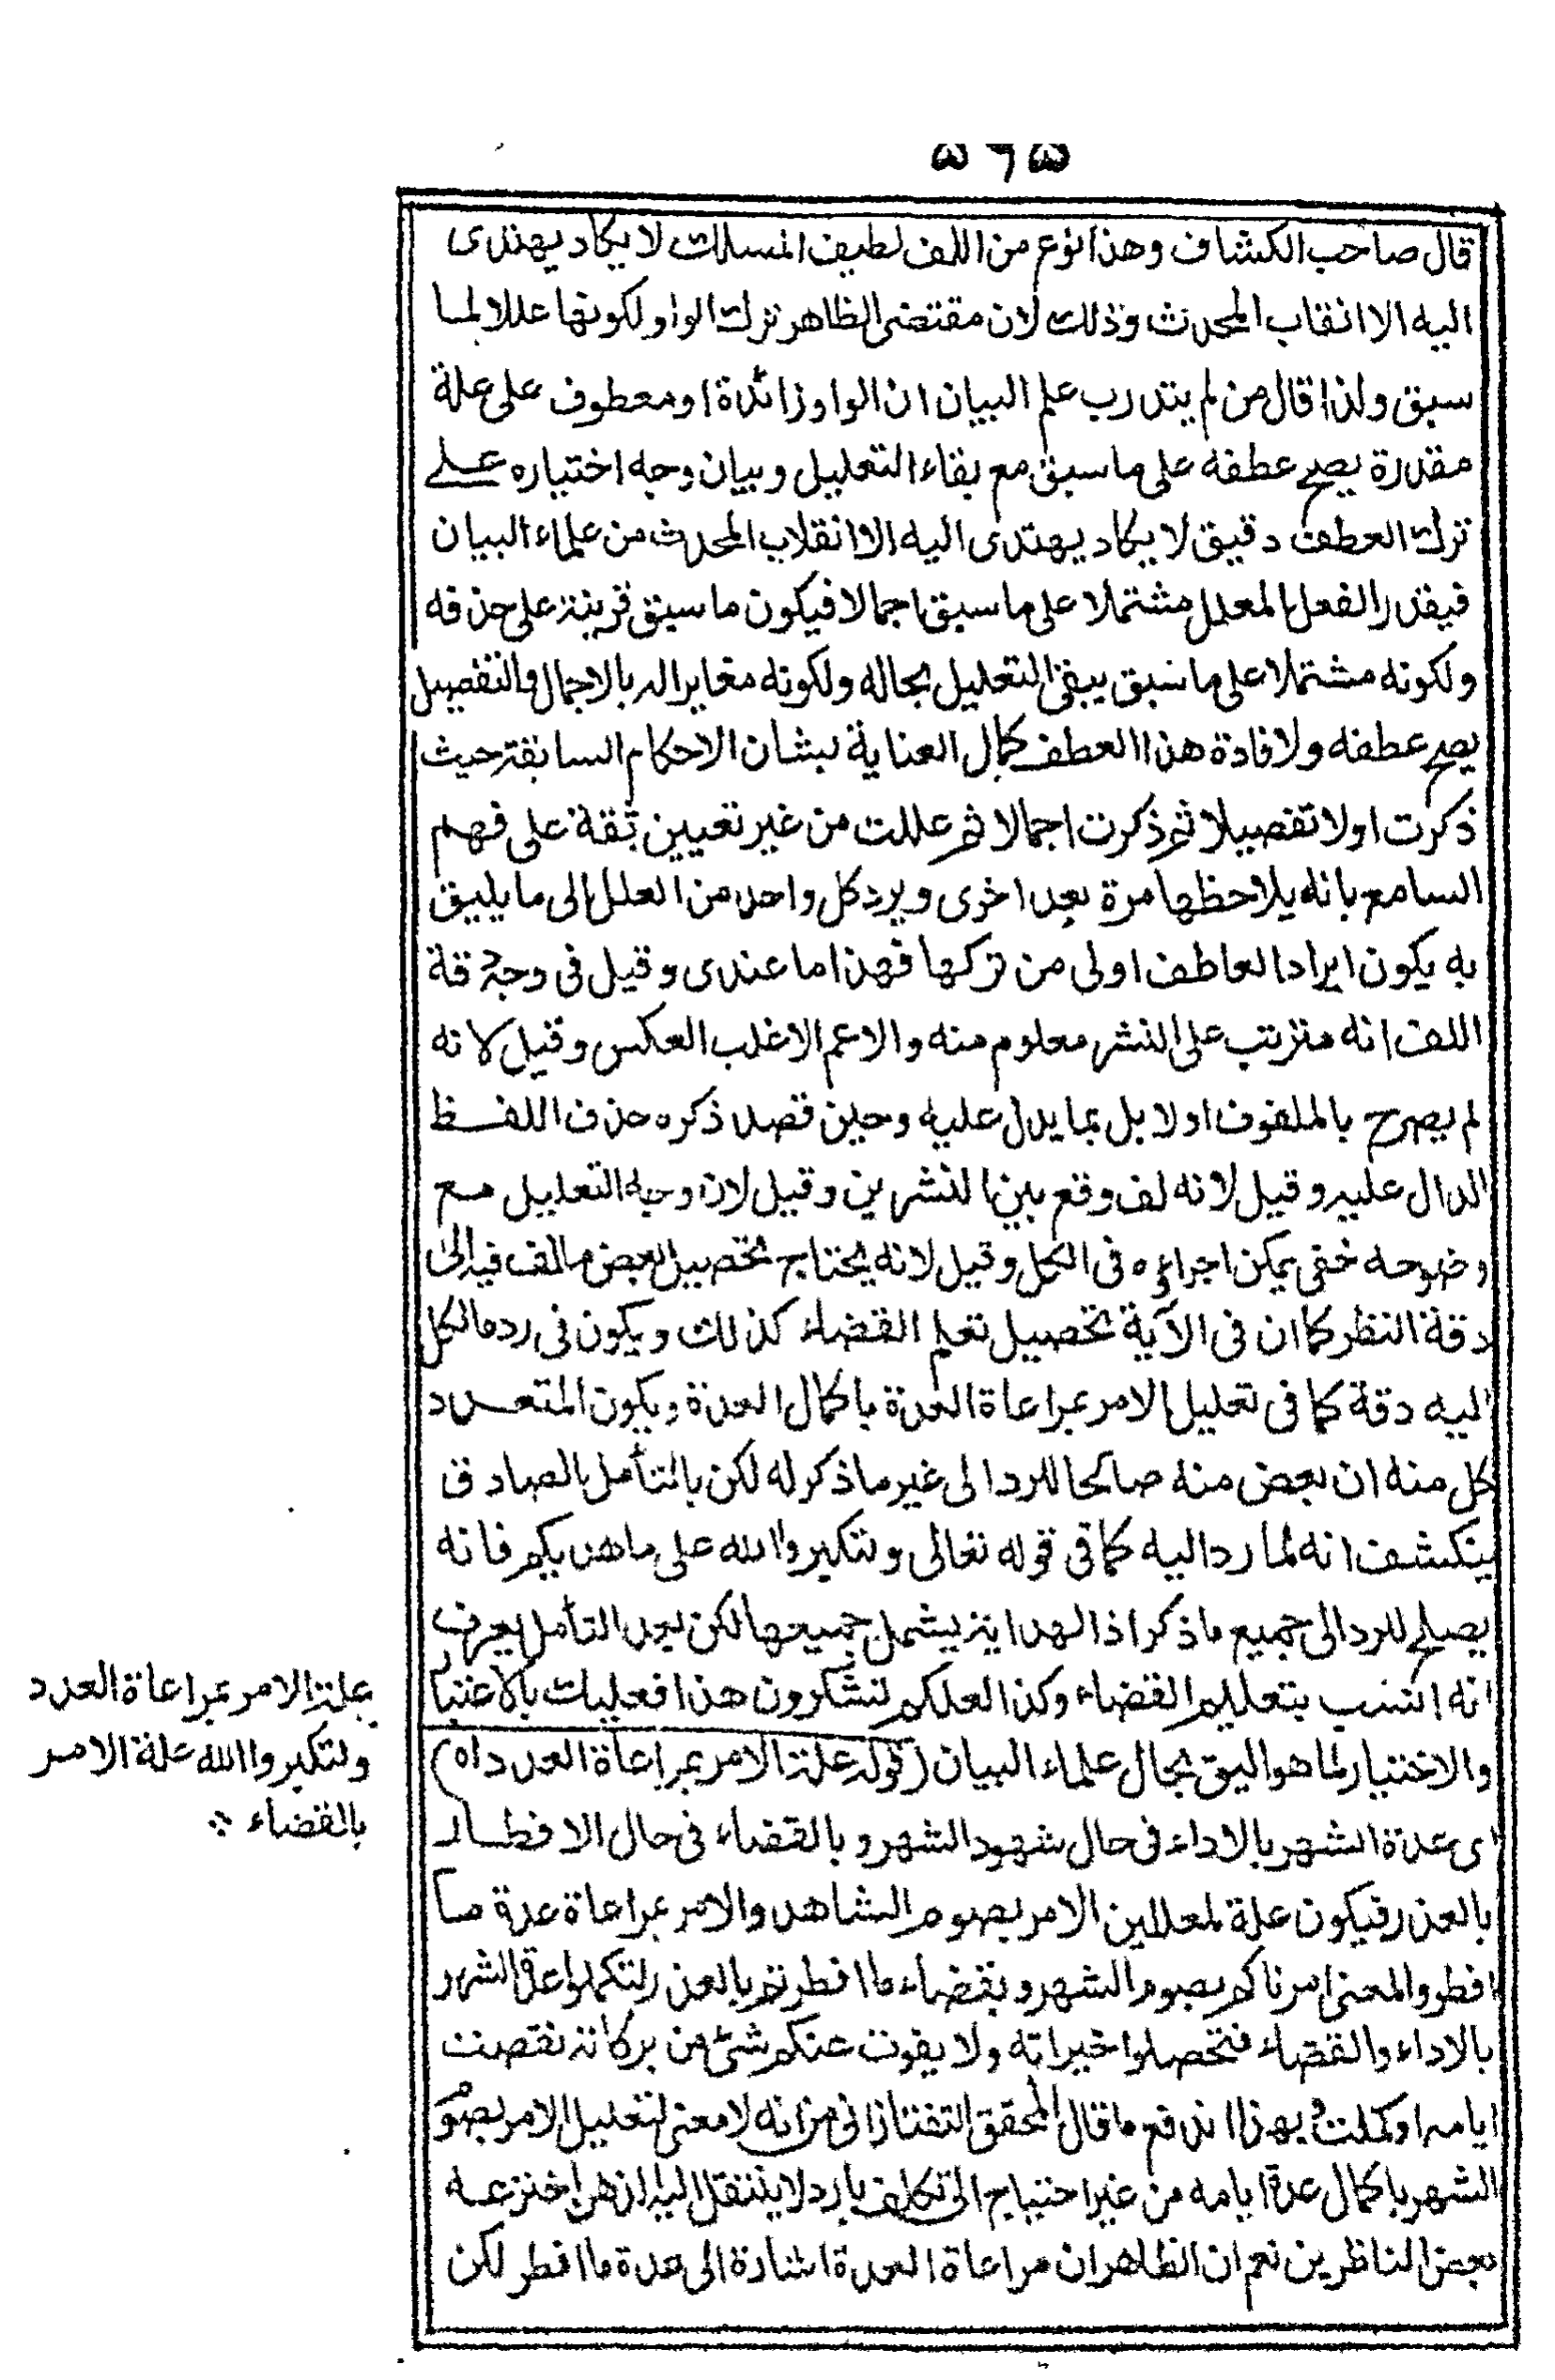 ٥٦٥
قال صاحب الكشاف وهذا نوع من اللف لطيف المسلك لا يكاد يهتدى
اليه الا انقاب المحدث وذلك لان مقتضى الظاهر ترك الواو لكونها عللا لما
سبق ولذا قال من لم يتدرب علم البيان ان الواو زائدة او معطوف على علة
مقدرة يصح عطفه على ما سبق مع بقاء التعليل وبيان وجه اختياره على
ترك العطف دقيق لا يكاد يهتدى اليه الا انقلاب المحدث من علماء البيان
فيقدر الفعل المعلل مشتملا على ما سبق اجمالا فيكون ما سبق قرينة على حذفه
ولكونه مشتملا على ما سبق يبقى التعليل بحاله ولكونه مغايرا له بالاجمال والتفصيل
يصح عطفه ولافادة هذا العطف كمال العناية بشان الاحكام السابقة حيث
ذكرت اولا تفصيلا ثم ذكرت اجمالا ثم عللت من غير تعيين ثقة على فهم
السامع بانه يلاحظها مرة بعد اخرى ويرد كل واحد من العلل الى ما يليق
به يكون ايراد العاطف اولى من تركها فهذا ما عندى وقيل فى وجه دقة
اللف انه مترتب على النشر معلوم منه والاعم الاغلب العكس وقيل لانه
لم يصرح بالملفوف اولا بل بما يدل عليه وحين قصد ذكره حذف اللفظ
الدال عليه وقيل لانه لف وقع بين النشرين وقيل لان وجه التعليل مع
وضوحه خفى يمكن اجراؤه فى الكل وقيل لانه يحتاج تحصيل بعض ما لف فيه الى
دقة النظر كما ان فى الآية تحصيل تعلم القضاء كذلك ويكون فى رد ما لكل
اليه دقة كما فى تعليل الامر بمراعاة العدة باكمال العدة ويكون المتعدد
كل منه ان بعض منه صالحا للرد الى غير ما ذكر له لكن بالتأمل الصادق
ينكشف انه لما رد اليه كما فى قوله تعالى ولتكبروا الله على ما هديكم فانه
يصلح للرد الى جميع ما ذكر اذ الهداية يشمل جميعها لكن بعد التأمل يعرف
انه انسب بتعليم القضاء وكذا لعلكم تشكرون هذا فعليك بالاعتبار
والاختيار لما هو اليق بحال علماء البيان (قوله علة الامر بمراعاة العدد اه)
اى عدة الشهر بالاداء فى حال شهود الشهر وبالقضاء فى حال الافطار
بالعذر فيكون علة لمعللين الامر بصوم الشاهد والامر بمراعاة عدة ما
افطر والمعنى امرناكم بصوم الشهر وبقضاء ما افطرتم بالعذر لتكملوا عدة الشهر
بالاداء والقضاء فتحصلوا خيراته ولا يفوت عنكم شئ من بركاته نقصت
ايامه او كملت وبهذا اندفع ما قال المحقق التفتازانى من انه لا معنى لتعليل الامر بصوم
الشهر باكمال عدة ايامه من غير احتياج الى تكلف بارد لا ينتقل اليه الاذهن اخترعه
بعض الناظرين نعم ان الظاهر ان مراعاة العدة اشارة الى عدة ما افطر لكن
علة الامر بمراعاة العدد
ولتكبروا الله علة الامر
بالقضاء